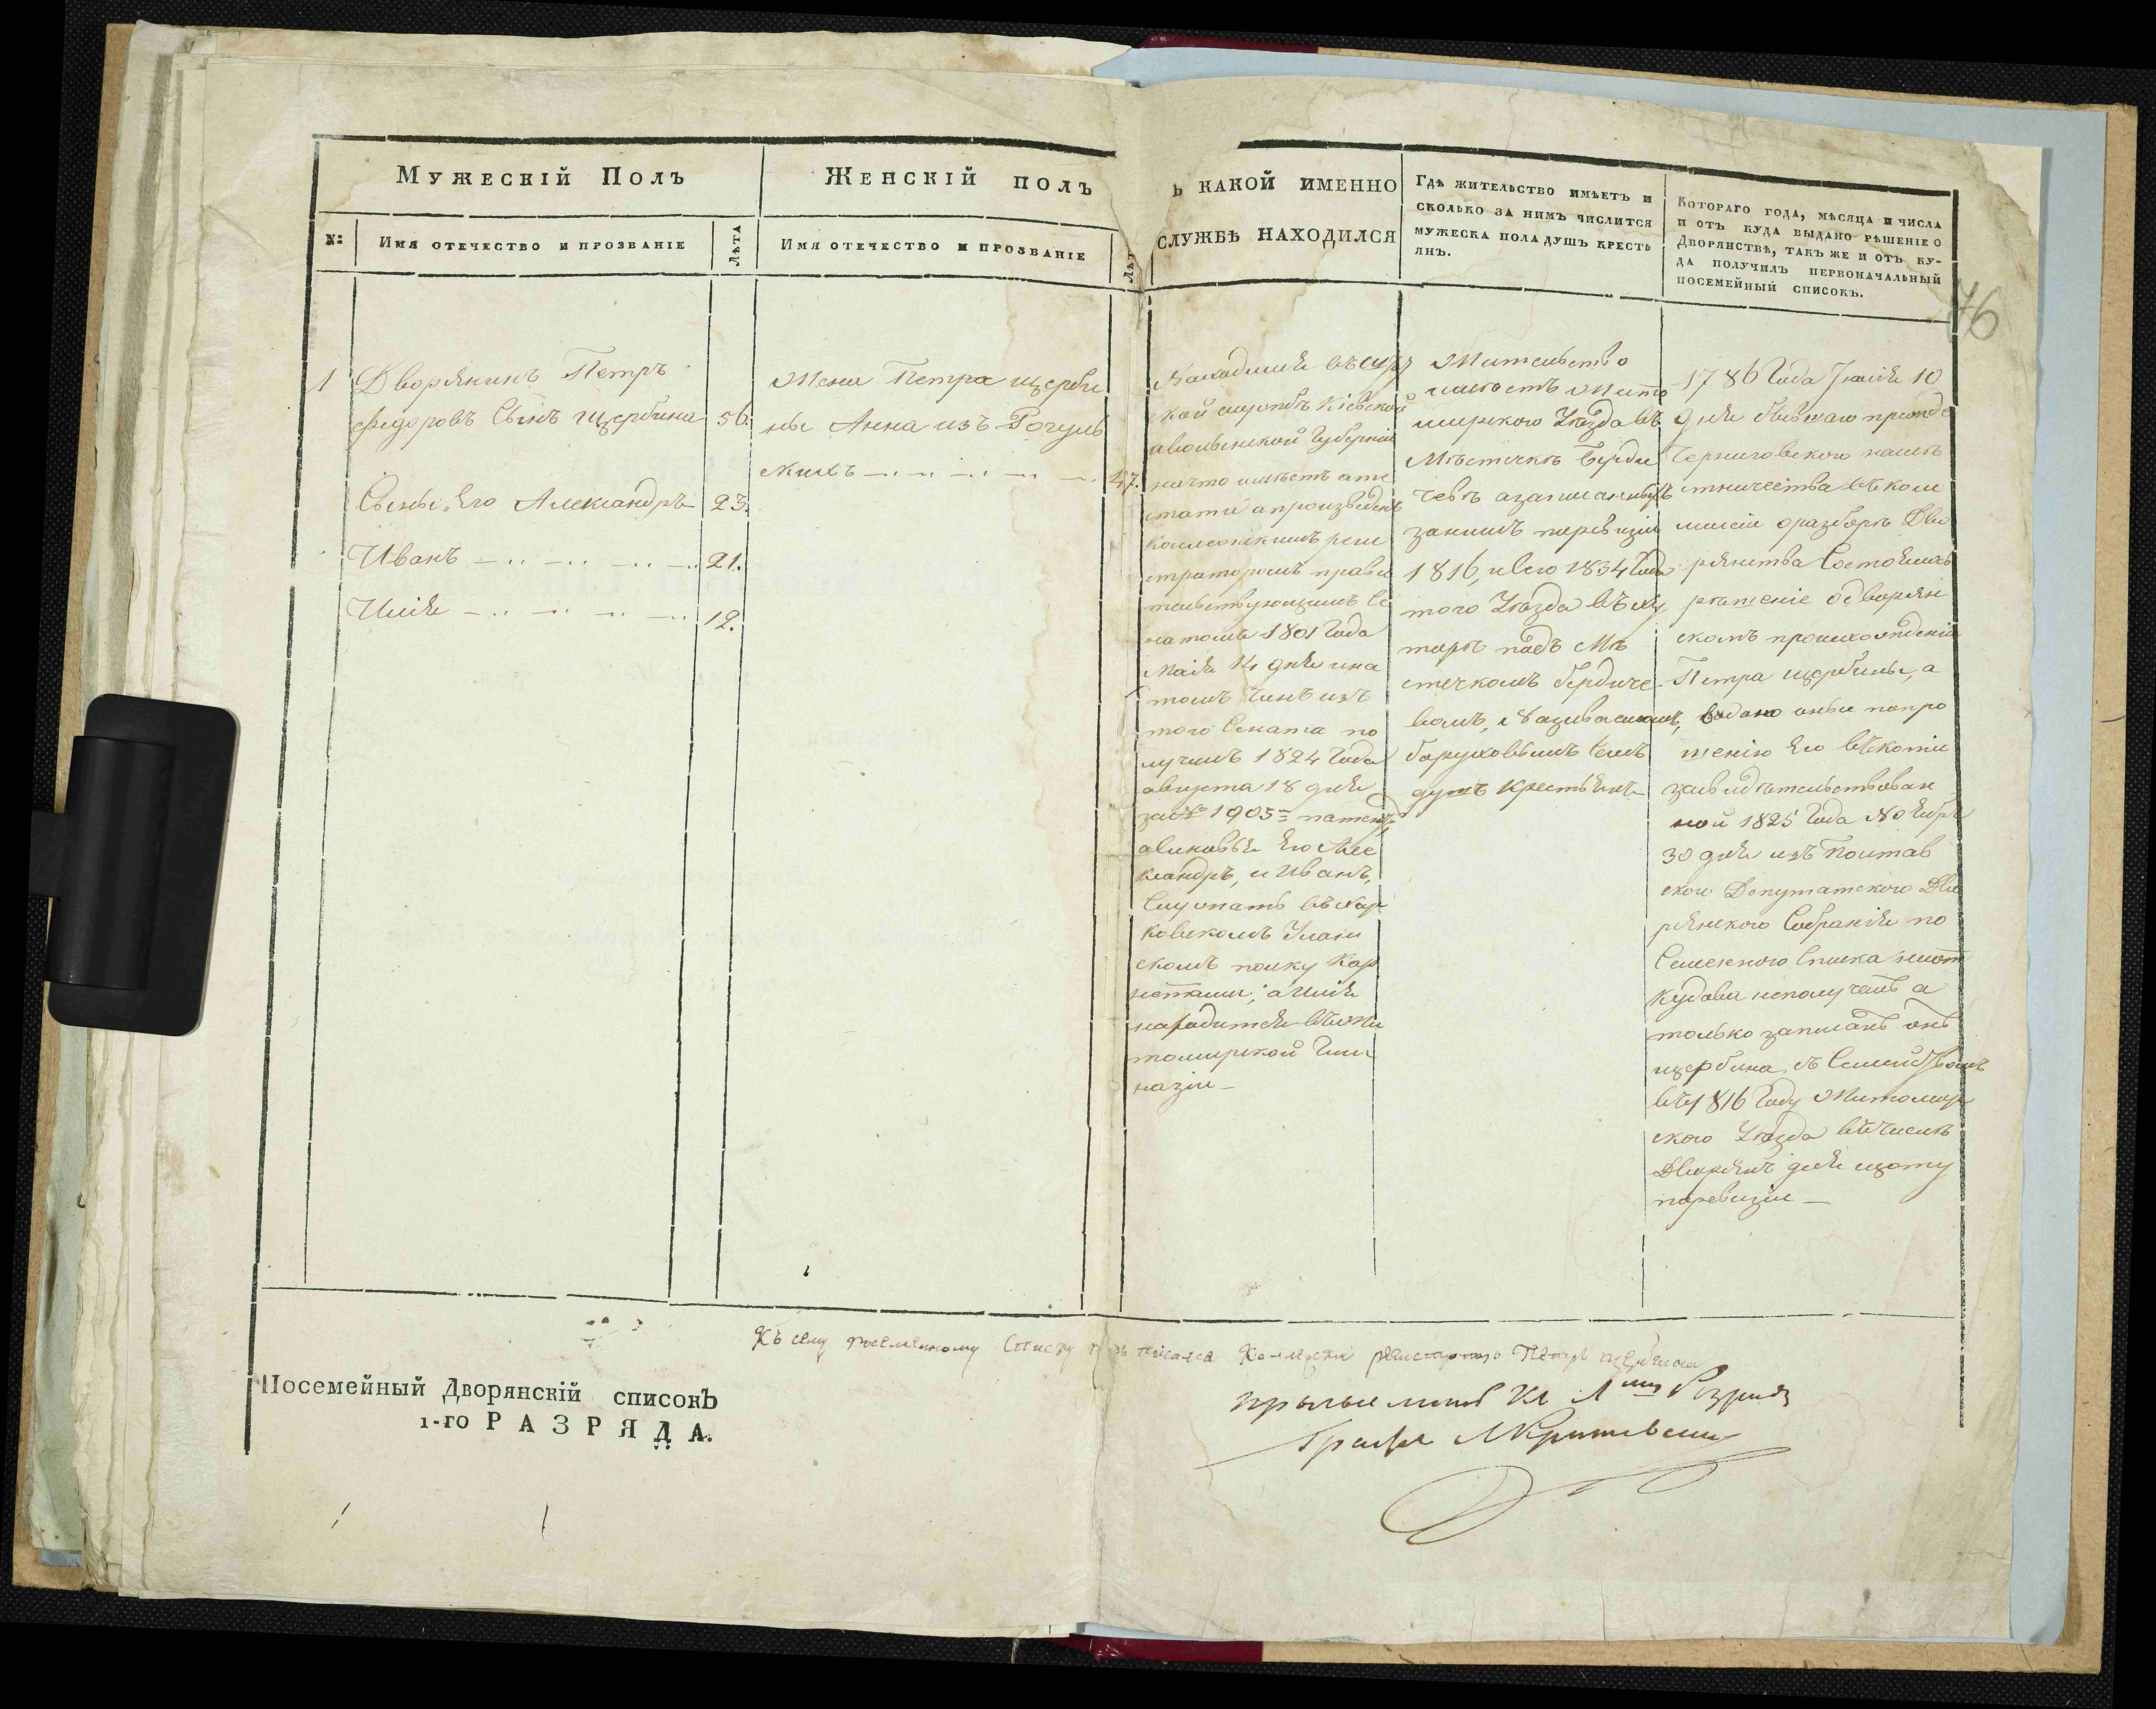 76
Мужескій Полъ
Женскій полъ
ъ какой именно
службѣ находился
Гдѣ жительство имѣетъ и
сколько за нимъ числится
мужеска пола душъ кресть
янъ.
Котораго года, мѣсяца и числа
и отъ куда выдано рѣшеніе о
Дворянствѣ, такъ же и отъ ку-
да получилъ первоначальный
посемейный списокъ.
№:
Имя отечество и прозваніе
Лѣта
Имя отечество и прозваніе
Лѣт
1
Дворянинъ Петръ
федоровъ Сынъ щербина 56.
Сыны Его Александръ 23.
Иванъ 21.
Илія 12.
Жена Петра щерби
ны Анна изъ Рогуль
скихъ 47.
Находился въ
ской службѣ Кіевской
аволынской Губерніи
начто имѣетъ атте
статы апроизведенъ
Коллежскимъ реги
страторомъ прави
тельствующимъ Се
натомъ 1801 Года
Маія 14 дня ина
томъ Чинѣ изъ
того Сената по
лучилъ 1824 Года
августа 18 дня
за № 1905 патентъ
асиновья Его Алек
сандръ, и Иванъ,
Служатъ въ Хар
ковскомъ Улан
скомъ полку Кор
нетами; а Илія
находится въ Жи
томирской Гим
назіи
Жительство
имѣетъ Жито
мирского Уѣзда въ
Мѣстечкѣ Берди
чевѣ азаписаннихъ
занимъ поревизіи
1816, и сего 1834 Года
того Уѣзда въ ху
торѣ подъ Мѣ
стечкомъ Бердиче
вомъ, Називаемомъ,
боруховымъ семъ
душъ Крестьянъ
1786 Года Іюлія 10
дня бывшаго преждѣ
Черниговского намѣ
стничества въ ком
мисіи оразборѣ Дво
рянства Состоялось
рѣшеніе одворян
скомъ происхожденіи
Петра щербины, а
видано оные попро
шенію Его въ копіи
засвидѣтельствован
ной 1825 Года Ноября
30 дня изъ Полтав
ского Депутатского Дво
рянского Собранія по
Семейного Списка ниот
кудова неполучалъ а
только записанъ онъ
щербина съ Семействомъ
въ 1816 Году Житомир
ского Уѣзда въ Числѣ
Дворянъ для щоту
поревизіи
Къ сему посемейному Списку подписался Колежскій регистраторъ Петръ щербина
Посемейный Дворянскій списокъ
1-го РАЗРЯДА.